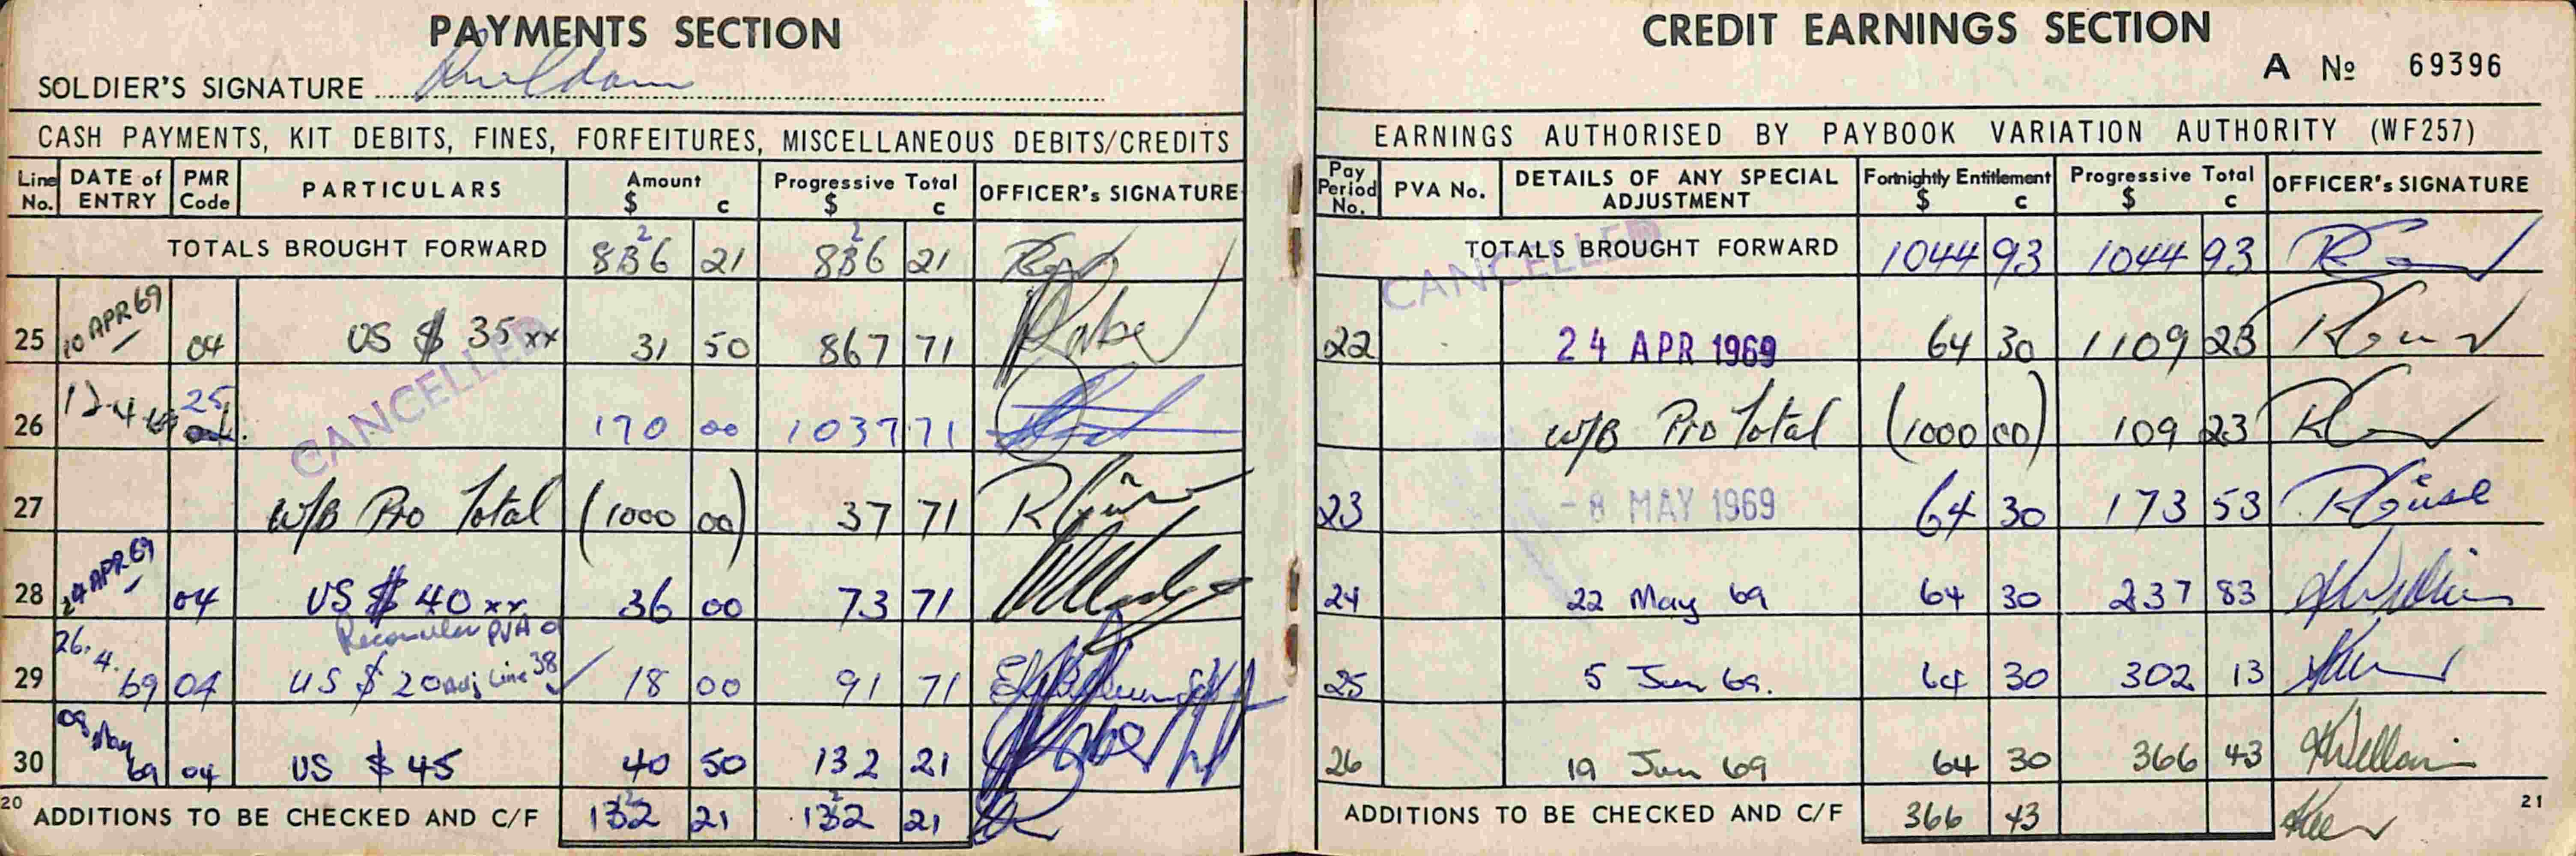 PAYMENTS SECTION
SOLDIER'S SIGNATURE
CASH PAYMENTS, KIT DEBITS, FINES, FORFEITURES, MISCELLANEOUS DEBITS/CREDITS
Line No. DATE of ENTRY PMR Code PARTICULARS Amount $ c Progressive Total $ c OFFICER's SIGNATURE
TOTALS BROUGHT FORWARD 836 2 21 836 2 21
25 10 APR 69 04 US $ 35 xx 31 50 867 71
CANCELLED
26 12-4-69 25 04 170 00 1037 71
27 W/B Pro Total (1000 00) 37 71
28 24 APR 69 04 US $ 40 xx 36 00 73 71
29 26.4.69 04 US $ 20 adj Line 38 18 00 91 71
30 09 May 69 04 US $ 45 40 50 132 21
20 ADDITIONS TO BE CHECKED AND C/F 132 2 21 132 2 21
CREDIT EARNINGS SECTION
A № 69396
EARNINGS AUTHORISED BY PAYBOOK VARIATION AUTHORITY (WF257)
Pay Period No. PVA No. DETAILS OF ANY SPECIAL ADJUSTMENT Fortnightly Entitlement $ c Progressive Total $ c OFFICER's SIGNATURE
TOTALS BROUGHT FORWARD 1044 93 1044 93
CANCELLED
22 24 APR 1969 64 30 1109 23
W/B Pro Total (1000 00) 109 23
23 -8 MAY 1969 64 30 173 53
24 22 May 69 64 30 237 83
25 5 Jun 69. 64 30 302 13
26 19 Jun 69 64 30 366 43
ADDITIONS TO BE CHECKED AND C/F 366 43
21